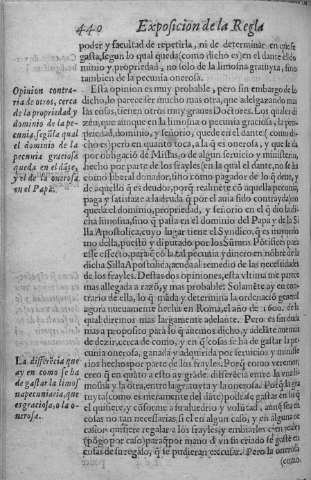 440 Exposicion de la Regla
poder y facultad de repetirla, ni de determinar en que se
gasta, segun lo qual queda (como dicho es) en el dante el do
minio y propriedad, no solo de la limosna gratuyta, sino
tambien de la pecunia onerosa.
Opinion contra-
ria de otros, cerca
de la propriedad y
dominio de la pe-
cunia, segũ la qual
el dominio de la
pecunia graciosa
queda en el dãte,
y el de la onerosa
en el Papa.
Esta opinion es muy probable, pero sin embargo de lo
dicho, lo parece ser mucho mas otra, que adelgazando mas
las cosas, tienen otros muy graves Doctores. Los quales di
zen, que aunque en la limosna o pecunia graciosa, la pro-
priedad, dominio, y señorio, quede en el dante (como di-
cho es) pero en quanto toca, a la q̃ es onerosa, y que le dã
por obligaciõ de Missas, o de algun servicio y ministerio,
hecho por parte de los frayles (en la qual el dante, no se ha
como liberal donador, sino como pagador de lo q̃ deve, y
de aquello q̃ es deudor, porq̃ realmẽte cõ aquella pecunia,
paga y satisfaze a la deuda q̃ por el avia sido contrayda) no
queda el dominio, propriedad, y señorio en el q̃ dio la di-
cha limosna, sino q̃ passa en el dominio del Papa y de la Si
lla Apostolica, cuyo lugar tiene el Syndico, q̃ es mayordo
mo della, puesto y diputado por los Sũmos Põtifices para
esse effecto, para q̃ cõ la tal pecunia y dinero en nõbre de la
dicha Silla Apostolica, acuda al remedio de las necesidades
de los frayles. Destas dos opiniones, esta vltima me parece
mas allegada a razõ, y mas probable: Solamẽte ay en con-
trario de ella, lo q̃ mãda y determina la ordenaciõ general
agora nuevamente hecha en Roma, el año de 1600. de la
qual diremos mas largamente adelante. Pero es
mas a proposito para lo q̃ aremos dicho, y adelãte avemos
de dezir, cerca de como, y en q̃ cosas se ha de gastar la pe-
cunia onerosa, ganada y adquirida por servicios y ministe
rios hechos por parte de los frayles. Porq̃ como veremos,
La differẽcia que
ay en como se ha
de gastar la limos
na pecuniaria, que
es graciosa, o la o-
nerosa.
creo q̃ en quãto a esto ay grãde differẽcia entre la vna li-
mosna y la otra, entre la gratuyta y la onerosa. Porq̃ la gra
tuyta (como es meramente del dãte) podrase gastar en lo
q̃ quisiere, y cõforme a su aluedrio y volũtad, aunq̃ sea en
cosas no tan necessarias, si el en algun caso, y en alguna o-
casion quisiere regalar a los frayles, y embiarles
(põgo por caso) para q̃ por mano dl vn su criado se gaste en
cosas de su regalo, q̃ se pudieran excusar. Pero la onerosa
(como